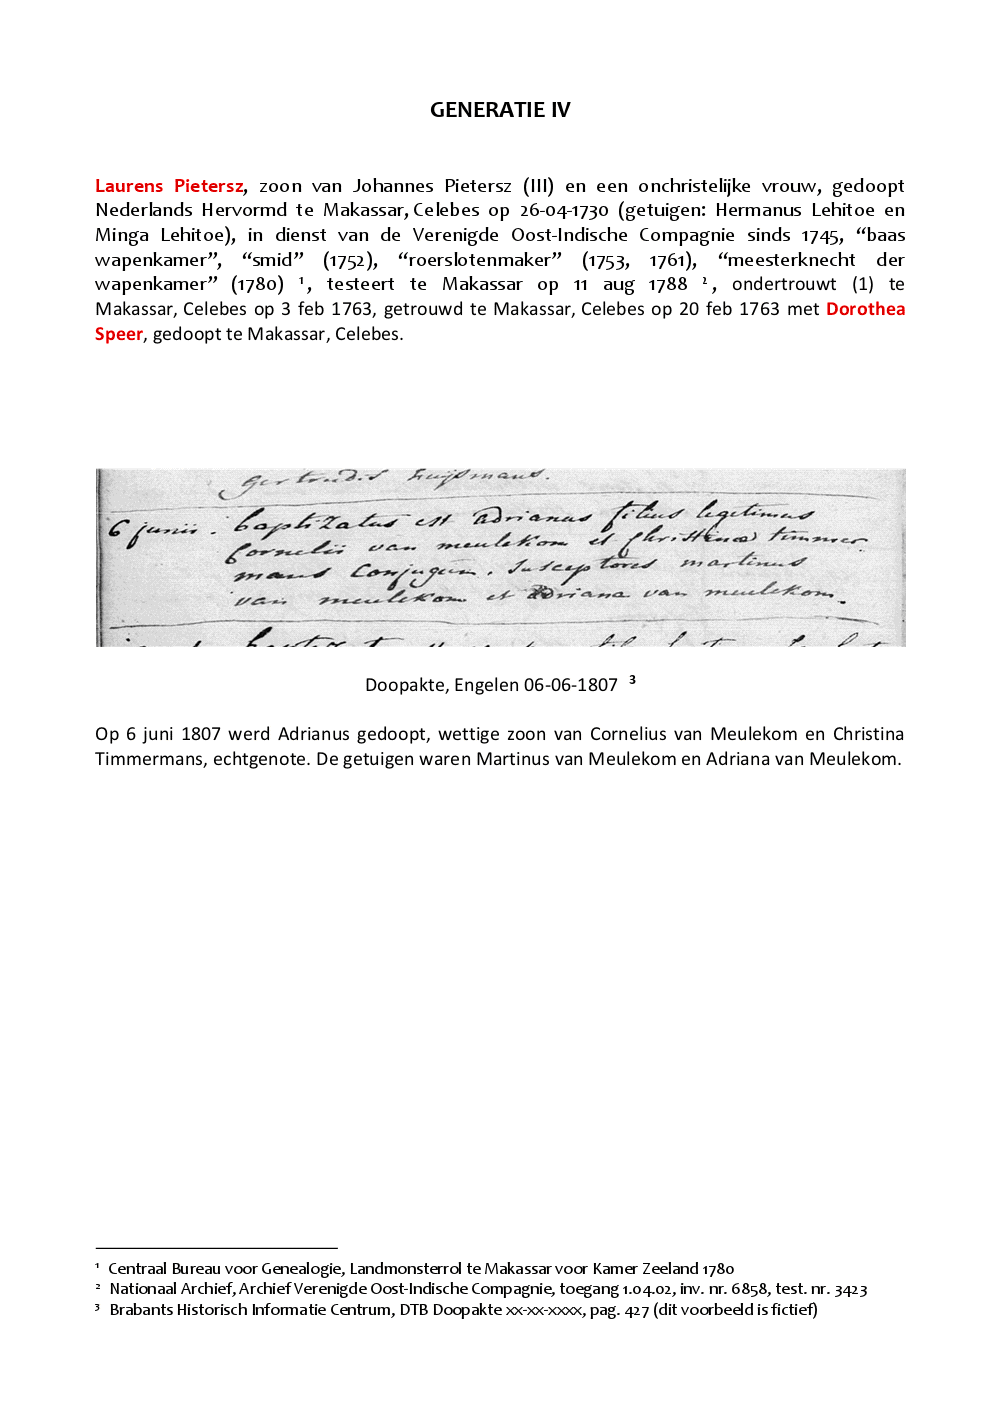 GENERATIE IV
Laurens Pietersz, zoon van Johannes Pietersz (III) en een onchristelijke vrouw, gedoopt
Nederlands Hervormd te Makassar, Celebes op 26-04-1730 (getuigen: Hermanus Lehitoe en
Minga Lehitoe), in dienst van de Verenigde Oost-Indische Compagnie sinds 1745, “baas
wapenkamer”, “smid” (1752), “roerslotenmaker” (1753, 1761), “meesterknecht der
wapenkamer” (1780) ¹, testeert te Makassar op 11 aug 1788 ², ondertrouwt (1) te
Makassar, Celebes op 3 feb 1763, getrouwd te Makassar, Celebes op 20 feb 1763 met Dorothea
Speer, gedoopt te Makassar, Celebes.
gertrudis huijsmans.
6 junii. baptizatus est Adrianus filius legitimus
Cornelii van meulekom et Christinae timmer
mans Conjugum. Susceptores martinus
van meulekom et Adriana van meulekom.
Doopakte, Engelen 06-06-1807 ³
Op 6 juni 1807 werd Adrianus gedoopt, wettige zoon van Cornelius van Meulekom en Christina
Timmermans, echtgenote. De getuigen waren Martinus van Meulekom en Adriana van Meulekom.
¹ Centraal Bureau voor Genealogie, Landmonsterrol te Makassar voor Kamer Zeeland 1780
² Nationaal Archief, Archief Verenigde Oost-Indische Compagnie, toegang 1.04.02, inv. nr. 6858, test. nr. 3423
³ Brabants Historisch Informatie Centrum, DTB Doopakte xx-xx-xxxx, pag. 427 (dit voorbeeld is fictief)